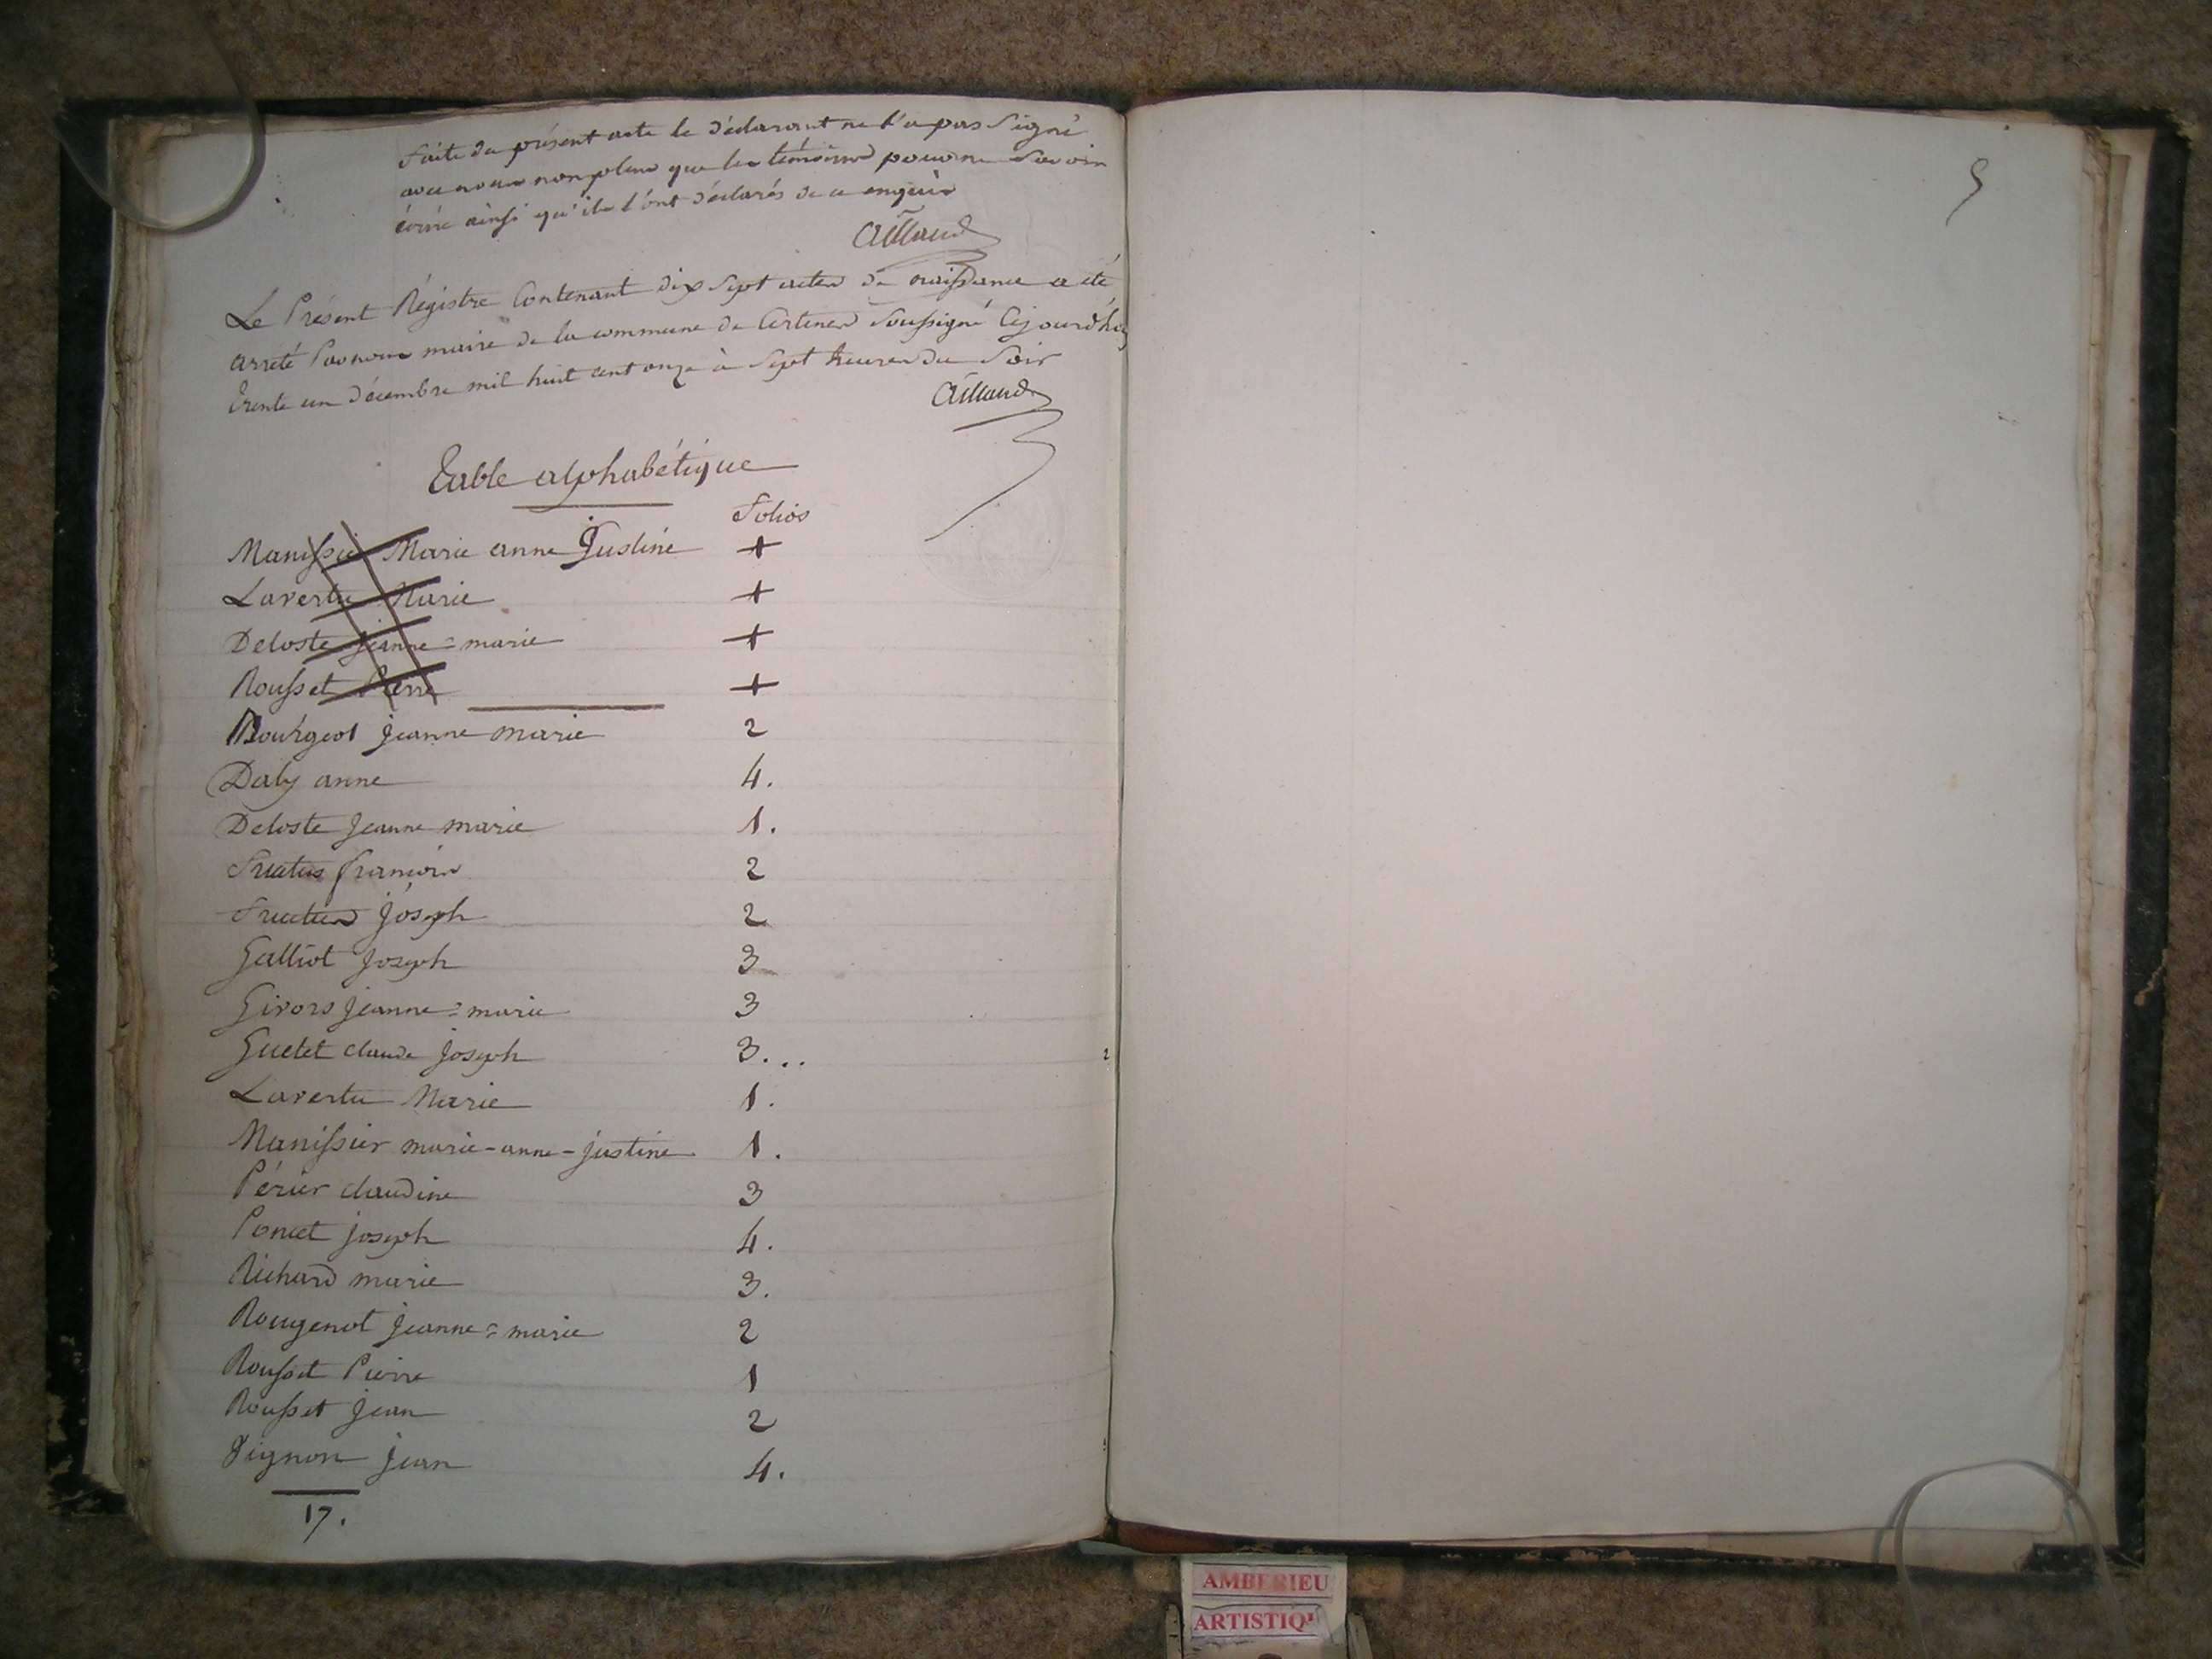 faite du présent acte le déclarant ne l'a pas Signé
avec nous non plus que les témoins pour ne Savoir
écrire ainsi qu'ils l'ont déclarés de ce enquis
Aillaud
Le Présent Régistre Contenant dix Sept actes de naissance a été
arreté Par nous maire de la commune de Soussigné Cejourd'huy
trente un décembre mil huit cent onze à Sept heures du Soir
Aillaud
Table alphabétique
folios
Manissier Marie anne Justine +
Lavertu Marie +
Deloste jeanne=marie +
Rousset Pierre +
Bourgeot jeanne marie 2
Daly anne 4.
Deloste Jeanne marie 1.
Fructus françois 2
Fructus joseph 2
Galliot joseph 3
Girors jeanne=marie 3
Guetet claude joseph 3...
Lavertu Marie 1.
Manissier marie-anne-justine 1.
Périer claudine 3
Poncet joseph 4.
Richard marie 3.
Rougenot jeanne=marie 2
Rousset Pierre 1
Rousset jean 2
Vignon jean 4.
17.
5
AMBERIEU
ARTISTIQ